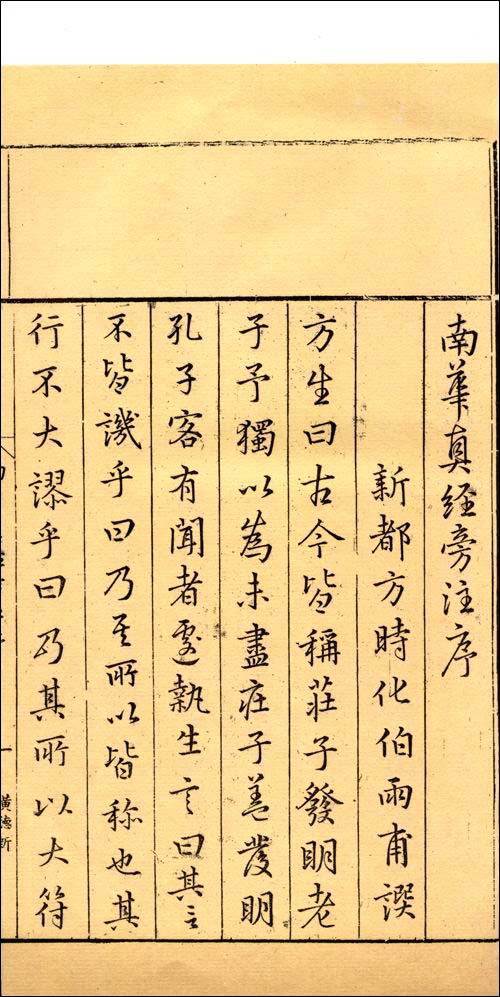 南華真經旁注序
新都方時化伯雨甫譔
方生曰古今皆稱莊子發明老
子予獨以為未盡莊子蓋發明
孔子客有聞者遽執生言曰其言
不皆譏乎曰乃其所以皆称也其
行不大謬乎曰乃其所以大符
一
黃德新